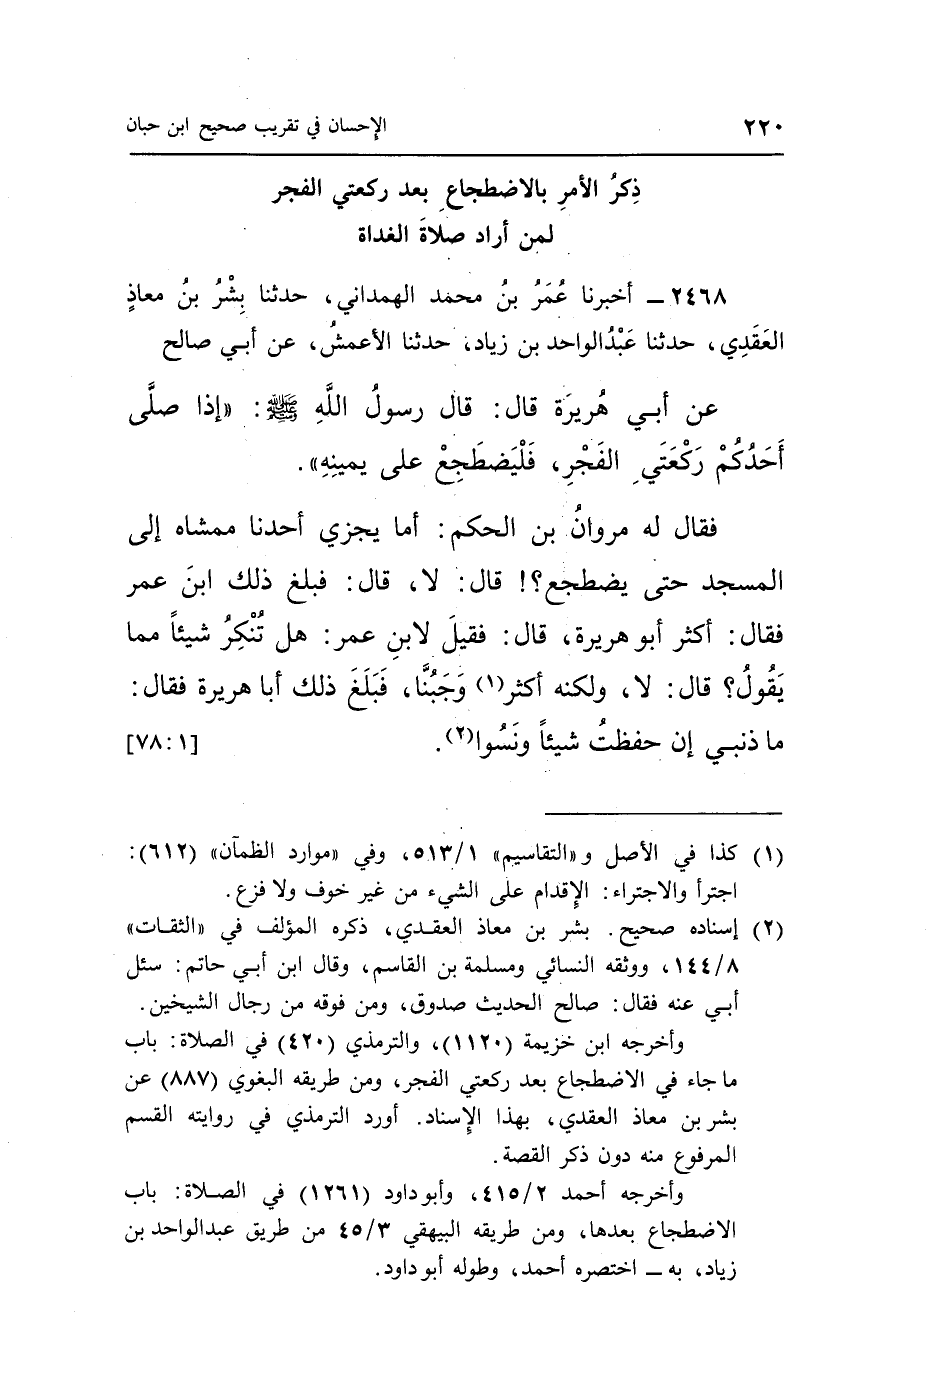 ٢٢٠ الإحسان في تقريب صحيح ابن حبان
ذِكرُ الأمرِ بالاضطجاعِ بعد ركعتي الفجر
لمن أراد صلاةَ الغداة
٢٤٦٨ ــ أخبرنا عُمَرُ بنُ محمد الهمداني، حدثنا بِشْرُ بنُ معاذٍ
العَقَدِي، حدثنا عَبْدُالواحد بن زياد، حدثنا الأعمشُ، عن أبي صالح
عن أبي هُريرَة قال: قال رسولُ اللَّهِ ﷺ: «إذا صلَّى
أَحَدُكُمْ رَكْعَتَي الفَجْرِ، فَلْيَضطَجِعْ على يمينِهِ».
فقال له مروانُ بن الحكم: أما يجزي أحدنا ممشاه إلى
المسجد حتى يضطجع؟! قال: لا، قال: فبلغ ذلك ابنَ عمر
فقال: أكثر أبو هريرة، قال: فقيلَ لابنِ عمر: هل تُنْكِرُ شيئاً مما
يَقُولُ؟ قال: لا، ولكنه أكثر(١) وَجَبُنَّا، فَبَلَغَ ذلك أبا هريرة فقال:
ما ذنبي إن حفظتُ شيئاً ونَسُوا(٢). [١: ٧٨]
(١) كذا في الأصل و«التقاسيم» ٥١٣/١، وفي «موارد الظمآن» (٦١٢):
اجترأ والاجتراء: الإقدام على الشيء من غير خوف ولا فزع.
(٢) إسناده صحيح. بشر بن معاذ العقدي، ذكره المؤلف في «الثقات»
١٤٤/٨، ووثقه النسائي ومسلمة بن القاسم، وقال ابن أبي حاتم: سئل
أبي عنه فقال: صالح الحديث صدوق، ومن فوقه من رجال الشيخين.
وأخرجه ابن خزيمة (١١٢٠)، والترمذي (٤٢٠) في الصلاة: باب
ما جاء في الاضطجاع بعد ركعتي الفجر، ومن طريقه البغوي (٨٨٧) عن
بشر بن معاذ العقدي، بهذا الإسناد. أورد الترمذي في روايته القسم
المرفوع منه دون ذكر القصة.
وأخرجه أحمد ٤١٥/٢، وأبو داود (١٢٦١) في الصلاة: باب
الاضطجاع بعدها، ومن طريقه البيهقي ٤٥/٣ من طريق عبدالواحد بن
زياد، به ــ اختصره أحمد، وطوله أبو داود.